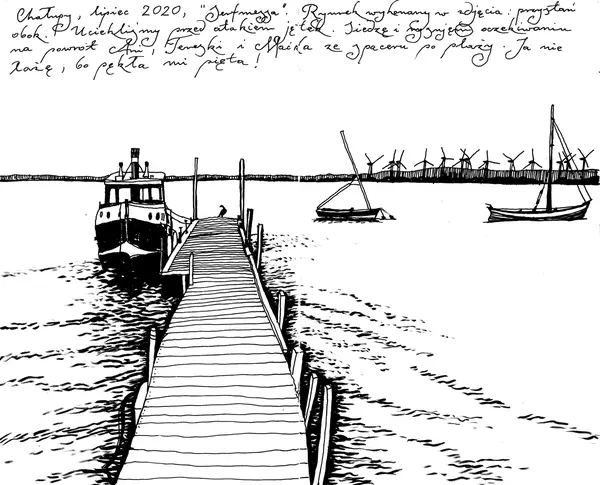 Chałupy, lipiec 2020, "Surfmesa". Rysunek wykonany w zdjęcia: przystań
obok. Uciekliśmy przed atakiem jętek. Siedzę i rysuję w oczekiwaniu
na powrót Ani, Tereski i Maćka ze spaceru po plaży. Ja nie
łażę, bo pękła mi pięta!